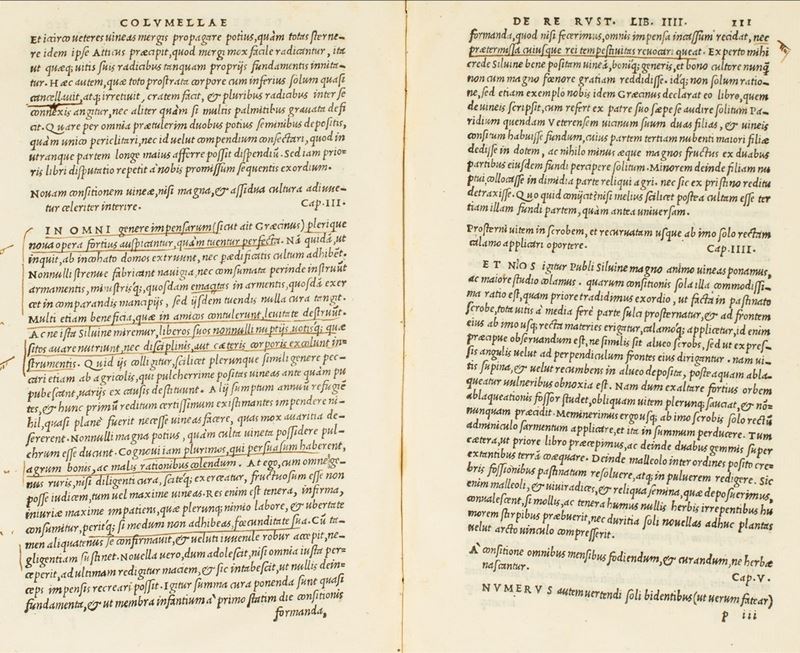 COLVMELLAE
Et iccirco veteres vineas mergis propagare potius, quàm totas sterne-
re idem ipse Atticus præcipit, quod mergi mox facile radicantur, ita
ut quæq; vitis suis radicibus tanquam proprijs fundamentis innita-
tur. Hæc autem, quæ toto prostrata corpore cum inferius solum quasi
cancellauit, atq; irretiuit, cratem facit, & pluribus radicibus inter se
connexis angitur, nec aliter quàm si multis palmitibus grauata defi
cit. Quare per omnia prætulerim duobus potius seminibus depositis,
quàm unico periclitari, nec id uelut compendium consectari, quod in
utranque partem longe maius afferre possit dispendiũ. Sed iam prio-
ris libri disputatio repetit à nobis promissum sequentis exordium.
Nouam consitionem uineæ, nisi magna, & assidua cultura adiuue-
tur celeriter interire. Cap. III.
IN OMNI genere impensarum (sicut ait Græcinus) plerique
noua opera fortius auspicantur, quàm tuentur perfecta. Nã quidã, ut
inquit, ab incohato domos extruunt, nec pædificatis cultum adhibẽt.
Nonnulli strenue fabricant nauigia, nec consumata perinde instruũt
armamentis, ministrisq;, quosdam emacitas in armentis, quosdã exer
cet in comparandis mancipijs, sed ijsdem tuendis nulla cura tangit.
Multi etiam beneficia, quæ in amicos contulerunt, leuitate destruũt.
Ac ne ista Siluine miremur, liberos suos nonnulli nuptijs uotisq; quæ
sitos auare nutriunt, nec disciplinis, aut cæteris corporis excolunt in-
strumentis. Quid ijs colligitur, scilicet plerunque simili genere pec-
cari etiam ab agricolis, qui pulcherrime positas uineas ante quàm pu
pubescant, uarijs ex causis destituunt. Alij sumptum annuũ refugiẽ
tes, & hunc primũ reditum certissimum existimantes impendere ni-
hil, quasi planè fuerit necesse uineas facere, quas mox auaritia de-
sererent. Nonnulli magna potius, quàm culta uineta possidere pul-
chrum esse ducunt. Cognoui iam plurimos, qui persuasum haberent,
agrum bonis, ac malis rationibus colendum. At ego, cum omne ge-
nus ruris, nisi diligenti cura, sciteq; exerceatur, fructuosum esse non
posse iudicem, tum uel maxime uineas. Res enim est tenera, infirma,
iniuriæ maxime impatiens, quæ plerunq; nimio labore, & ubertate
consumitur, peritq; si modum non adhibeas, fœcunditate sua. Cũ ta-
men aliquatenus se confirmauit, & ueluti iuuenile robur accepit, ne-
gligentiam sustinet. Nouella uero, dum adolescit, nisi omnia iusta per-
ceperit, ad ultimam redigitur maciem, & sic intabescit, ut nullis dein-
ceps impensis recreari possit. Igitur summa cura ponenda sunt quasi
fundamenta, & ut membra infantium à primo statim die consitionis
formanda,
DE RE RVST. LIB. IIII. 111
formanda, quod nisi fecerimus, omnis impensa incassum recidat, nec
prætermissa cuiusque rei tempestiuitas reuocari queat. Experto mihi
crede Siluine bene positam uineã, boniq; generis, et bono cultore nunq̃
non cum magno fœnore gratiam reddidisse. idq; non solum ratio-
ne, sed etiam exemplo nobis idem Græcinus declarat eo libro, quem
de uineis scripsit, cum refert ex patre suo sæpe se audire solitum Pa-
ridium quendam Veterensem uicinum suum duas filias, & uineis
consitum habuisse fundum, cuius partem tertiam nubenti maiori filiæ
dedisse in dotem, ac nihilo minus æque magnos fructus ex duabus
partibus eiusdem fundi percipere solitum. Minorem deinde filiam nu
ptui collocasse in dimidia parte reliqui agri. nec sic ex pristino reditu
detraxisse. Quo quid conijcit? nisi melius scilicet postea cultam esse ter
tiam illam fundi partem, quàm antea uniuersam.
Prosterni uitem in scrobem, et recuruatam usque ab imo solo rectam
calamo applicari oportere. Cap. IIII.
ET NOS igitur Publi Siluine magno animo uineas ponamus,
ac maiore studio colamus. quarum consitionis sola illa commodissi-
ma ratio est, quam priore tradidimus exordio, ut facta in pastinato
scrobe, tota uitis à media ferè parte sulci prosternatur, & ad frontem
eius ab imo usq; recta materies erigatur, calamoq; applicetur, id enim
præcipue obseruandum est, ne similis sit alueo scrobs, sed ut expres-
sis angulis uelut ad perpendiculum frontes eius dirigantur. nam ui-
tis supina, & uelut recumbens in alueo deposita, postea quam abla-
queatur uulneribus obnoxia est. Nam dum exaltare fortius orbem
ablaqueationis fossor studet, obliquam uitem plerunq; sauciat, & nõ-
nunquam præcidit. Meminerimus ergo usq; ab imo scrobis solo rectũ
adminiculo sarmentum applicare, et ita in summum perducere. Tum
cætera, ut priore libro præcepimus, ac deinde duabus gemmis super
extantibus terrã coæquare. Deinde malleolo inter ordines posito cre-
bris fossionibus pastinatum resoluere, atq; in puluerem redigere. Sic
enim malleoli, & uiuiradices, & reliqua semina, quæ deposuerimus,
conualescent, si mollis, ac tenera humus nullis herbis irrepentibus hu
morem stirpibus præbuerit, nec duritia soli nouellas adhuc plantas
uelut arcto uinculo compresserit.
A' consitione omnibus mensibus fodiendum, & curandum, ne herbæ
nascantur. Cap. V.
NVMERVS autem uertendi soli bidentibus (ut uerum fatear)
p iii